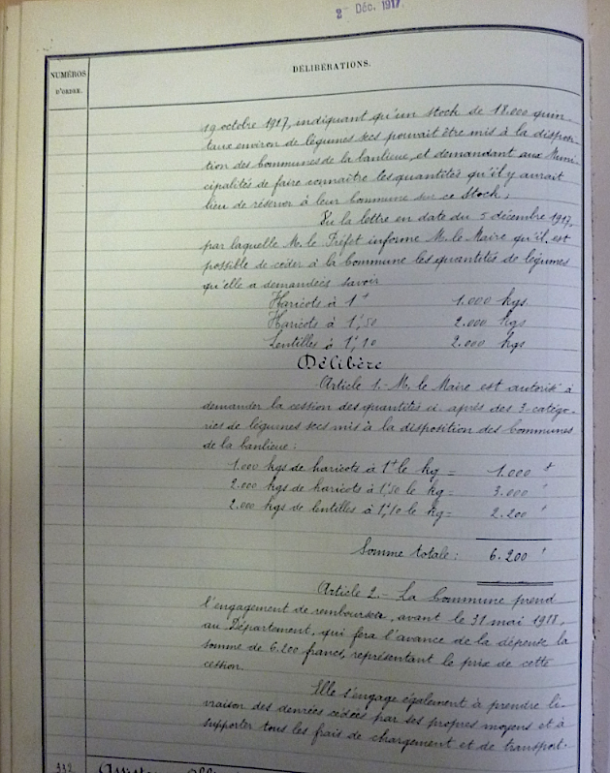 2 Déc. 1917
NUMÉROS
D'ORDRE.
DÉLIBÉRATIONS.
19 octobre 1917, indiquant qu'un stock de 18.000 quin-
taux environ de légumes secs pouvait être mis à la disposi-
tion des Communes de la banlieue, et demandant aux Muni-
cipalités de faire connaître les quantités qu'il y aurait
lieu de réserver à leur Commune sur ce Stock;
Vu la lettre en date du 5 décembre 1917,
par laquelle M. le Préfet informe M. le Maire qu'il est
possible de céder à la Commune les quantités de légumes
qu'elle a demandées savoir
Haricots à 1f 1.000 kgs
Haricots à 1f,50 2.000 kgs
Lentilles à 1f,10 2.000 kgs
Délibère
Article 1.- M. le Maire est autorisé à
demander la cession des quantités ci-après des 3 catégo-
ries de légumes secs mis à la disposition des Communes
de la banlieue:
1.000 kgs de haricots à 1f le kg = 1.000 f
2.000 kgs de haricots à 1f,50 le kg = 3.000 '
2.000 kgs de lentilles à 1f,10 le kg = 2.200 '
Somme totale: 6.200 '
Article 2.- La Commune prend
l'engagement de rembourser, avant le 31 mai 1918,
au Département, qui fera l'avance de la dépense la
somme de 6.200 francs, représentant le prix de cette
cession
Elle s'engage également à prendre li-
vraison des denrées cédées par ses propres moyens et à
supporter tous les frais de chargement et de transport.
342